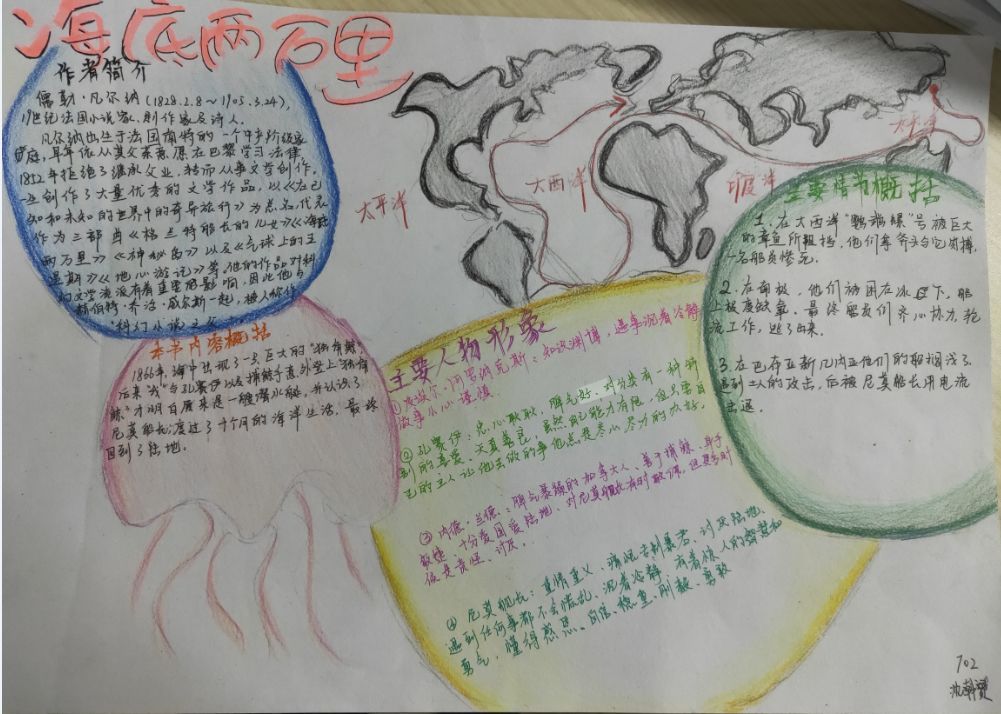 海底两万里
作者简介
儒勒·凡尔纳(1828.2.8~1905.3.24),
19世纪法国小说家、剧作家及诗人。
凡尔纳出生于法国南特的一个中产阶级家
庭,早年依从其父亲意愿在巴黎学习法律,
1852年拒绝了继承父业,转而从事文学创作。
一生创作了大量优秀的文学作品,以《在已
知和未知的世界中的奇异旅行》为总名,代表
作为三部曲《格兰特船长的儿女》《海底
两万里》《神秘岛》以及《气球上的五
星期》《地心游记》等,他的作品对科
幻文学流派有着重要的影响,因此他与
赫伯特·乔治·威尔斯一起,被人称作
“科幻小说之父”
本书内容概括
1866年,海中出现了一只巨大的“独角鲸”,
后来“我”与孔赛伊以及捕鲸手意外登上“独角
鲸”,才明白原来是一艘潜水艇,并认识了
尼莫船长,度过了十个月的海洋生活,最终
回到了陆地。
太平洋
大西洋
印度洋
太平洋
主要人物形象
阿罗纳克斯:知识渊博,遇事沉着冷静
做事小心谨慎
②孔赛伊:忠心耿耿,脾气好,对分类有一种特
别的喜爱、天真善良,虽然自己能力有限,但只要自
己的主人让他去做的事他总是尽心尽力的做好。
③内德·兰德:脾气暴躁的加拿大人、善于捕鲸、身手
敏捷、十分爱国爱陆地、对尼莫船长有时敬佩,但更多时
候是责怪、讨厌。
④尼莫船长:重情重义、痛恨专制暴君、讨厌陆地、
遇到任何事都不会慌乱、沉着冷静、有着惊人的智慧和
勇气,懂得感恩、自信、稳重、刚毅、勇敢
主要情节概括
1.在大西洋“鹦鹉螺”号被巨大
的章鱼所阻挡,他们拿斧头与它肉搏,
一名船员惨死。
2.在南极,他们被困在冰层下,船
上极度缺氧,最终留友们齐心协力,轮
流工作,逃了出来。
3.在巴布亚新几内亚他们的船搁浅了,
遇到土人的攻击,后被尼莫船长用电流
击退。
702